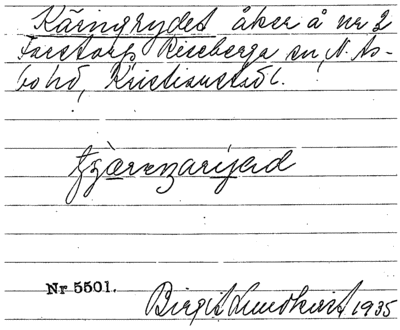 Käringrydet åker å nr 2
Farstorp Riseberga sn, N. Ås-
bo hd, Kristianstad l.
Nr 5501.
Birgit Lundkvist 1935